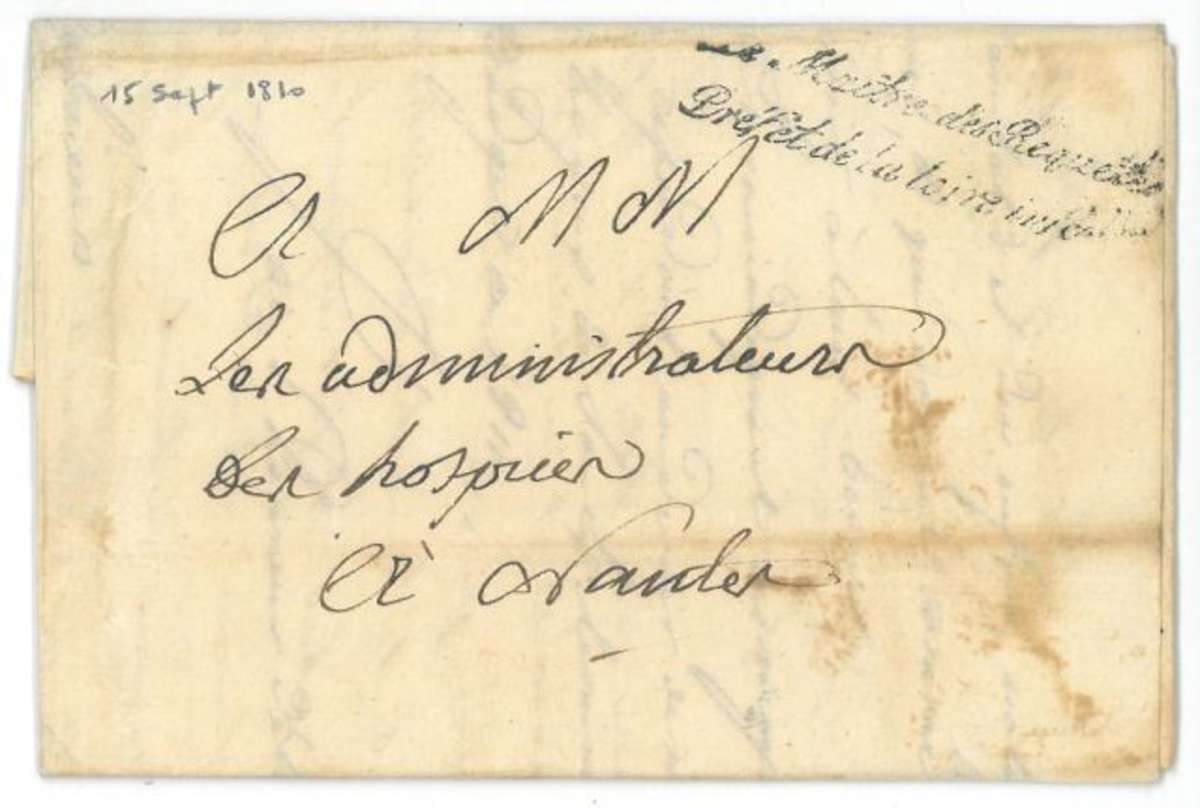 15 Sept 1810
Maitre des Requêtes
Préfet de la loire inf.
A MM
Les administrateurs
Des hospices
A Nantes